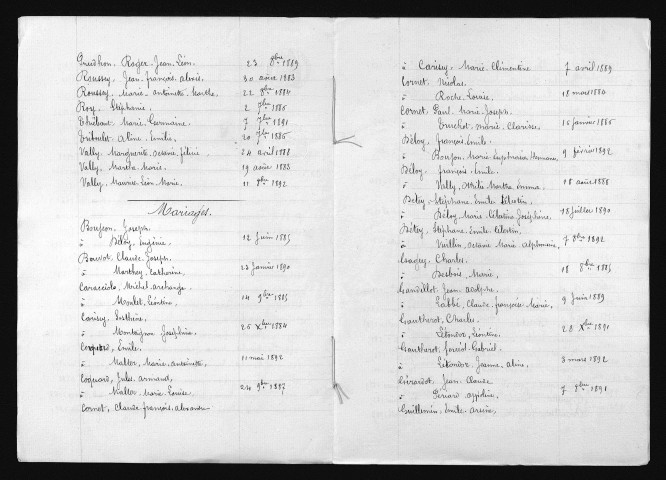 Prudhon, Roger, Jean, Léon. 23 9bre 1889
Roussey, Jean, françois, alexis. 30 août 1883
Roussey, Marie, antoinette, Marthe. 22 8bre 1884
Roy, Stéphanie. 2 9bre 1886
Thiébaut, Marie, Germaine 7 7bre 1891
Triboulet, Aline, Emilie. 20 7bre 1886
Vally, Marguerite, 24 avril 1888
Vally, Martha, Marie. 19 août 1883
Vally, Maurice, Léon, Marie. 11 9bre 1892
Mariages.
Bonpson, Joseph.
à Béloy, Eugénie. 12 Juin 1885
Bouvot, Claude, Joseph.
à Marthey, Catherine. 23 Janvier 1890
Caracciolo, Michel-archange
à Moulet, Léontine. 14 9bre 1885
Carisey,
à Montagnon, Joséphine. 26 Xbre 1884
Coquard, Emile.
à Walter, Marie, antoinette. 11 mai 1892
Coquard, Jules, armand,
à Walter, Marie, Louise. 24 9bre 1887
Cornet, Claude, françois, alexandre
à Carisey, Marie, Clémentine 7 avril 1889
Cornet, Nicolas
à Roche, Louise, 18 mars 1884
Cornet, Paul, Marie, Joseph.
à Truchot, Marie, Clarisse. 15 Janvier 1886
Béloy, françois, Emile.
à Bonpson, Marie, 9 février 1892
Béloy, françois, Emile.
à Vally, Marthe, Emma. 18 août 1888
Béloy, Stéphane, Emile, Célestin,
à Béloy, Marie, Célestine, Joséphine. 18 Juillet 1890
Béloy, Stéphane, Emile, Célestin,
à Vuillin, Marie, Alphonsine, 7 8bre 1892
Charles,
à Desbois, Marie, 18 8bre 1885
Gandillot, Jean,
à Labbé, Claude, françoise, Marie, 9 Juin 1889
Gautherot, Charles,
à Léontine. 28 Xbre 1891
Gautherot, Gabriel.
à Jeanne, aline, 3 mars 1892
Gérardot, Jean, Claude
à 1891
Guillemin, Emile,